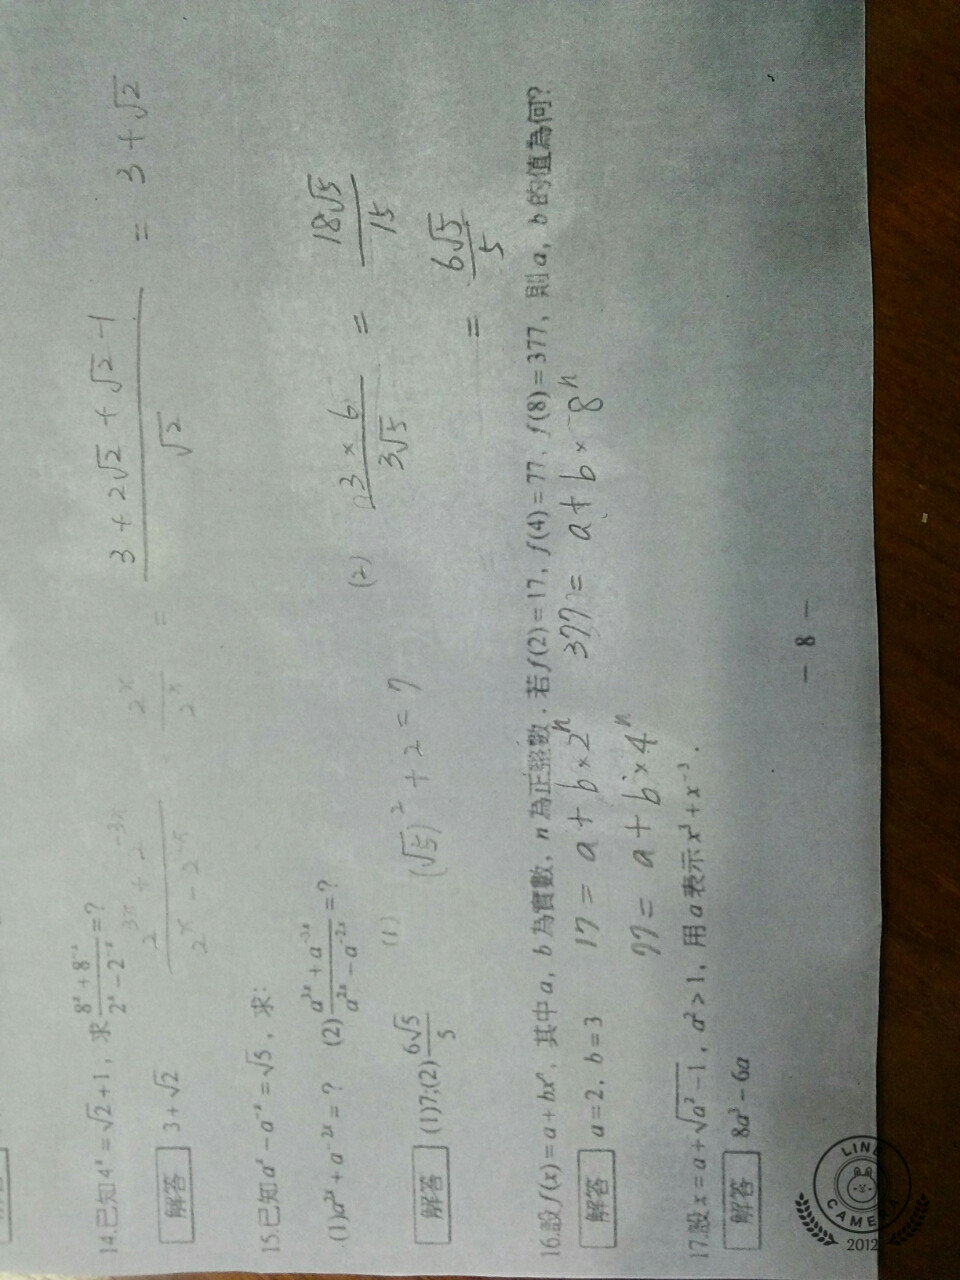 14.已知 4ˣ = √2 + 1，求 (8ˣ + 8⁻ˣ)/(2ˣ − 2⁻ˣ) = ?
(2³ˣ + 2⁻³ˣ)/(2ˣ − 2⁻ˣ) · 2ˣ/2ˣ = (3 + 2√2 + √2 − 1)/√2 = 3 + √2
解答 3 + √2
15.已知 aˣ − a⁻ˣ = √5，求：
(1) a²ˣ + a⁻²ˣ = ? (2) (a³ˣ + a⁻³ˣ)/(a²ˣ − a⁻²ˣ) = ?
(1) (√5)² + 2 = 7
(2) (3 × 6)/(3√5) = 18√5/15
= 6√5/5
解答 (1)7;(2) 6√5/5
16.設 f(x) = a + bxⁿ，其中 a，b 為實數，n 為正整數．若 f(2) = 17，f(4) = 77，f(8) = 377，則 a，b 的值為何?
17 = a + b × 2ⁿ 377 = a + b × 8ⁿ
77 = a + b × 4ⁿ
解答 a = 2，b = 3
17.設 x = a + √(a² − 1)，a² > 1，用 a 表示 x³ + x⁻³．
解答 8a³ − 6a
− 8 −
LINE
CAMERA
2012